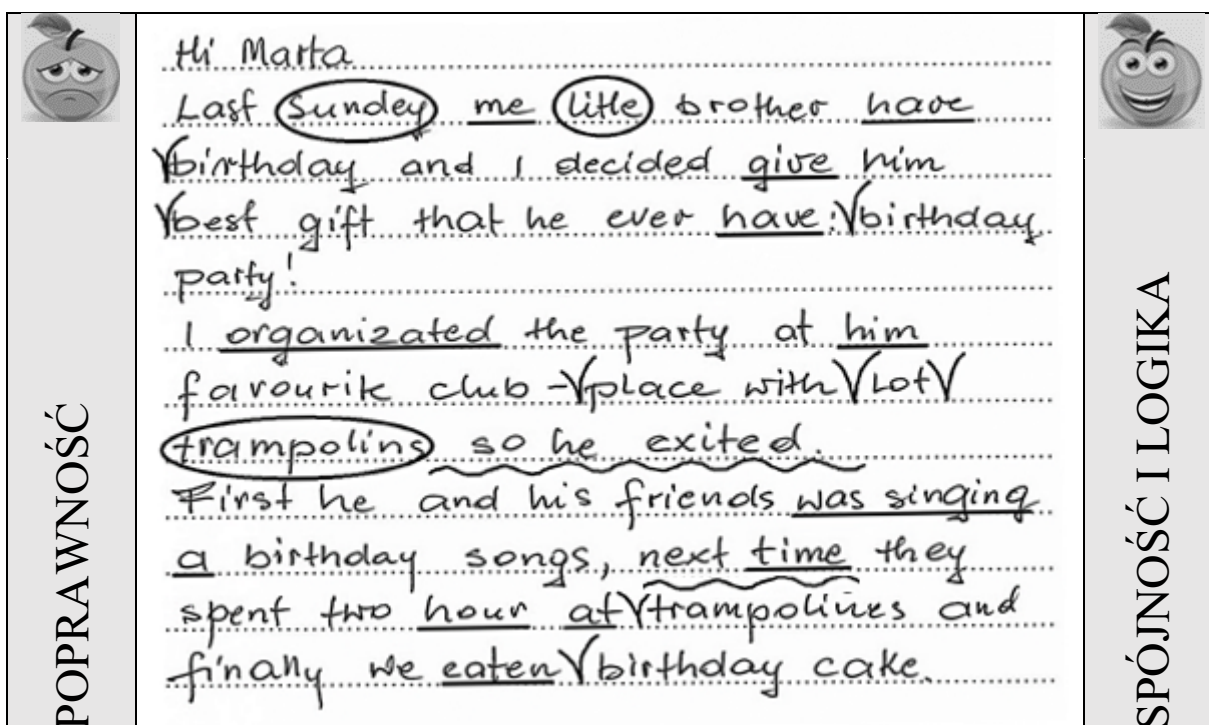 POPRAWNOŚĆ
Hi Marta
Last Sundey me litle brother have
√birthday and I decided give him
√best gift that he ever have:√birthday
party!
I organizated the party at him
favourite club-√place with √Lot√
trampolins so he exited.
First he and his friends was singing
a birthday songs, next time they
spent two hour at√trampolines and
finally we eaten √birthday cake.
SPÓJNOŚĆ I LOGIKA